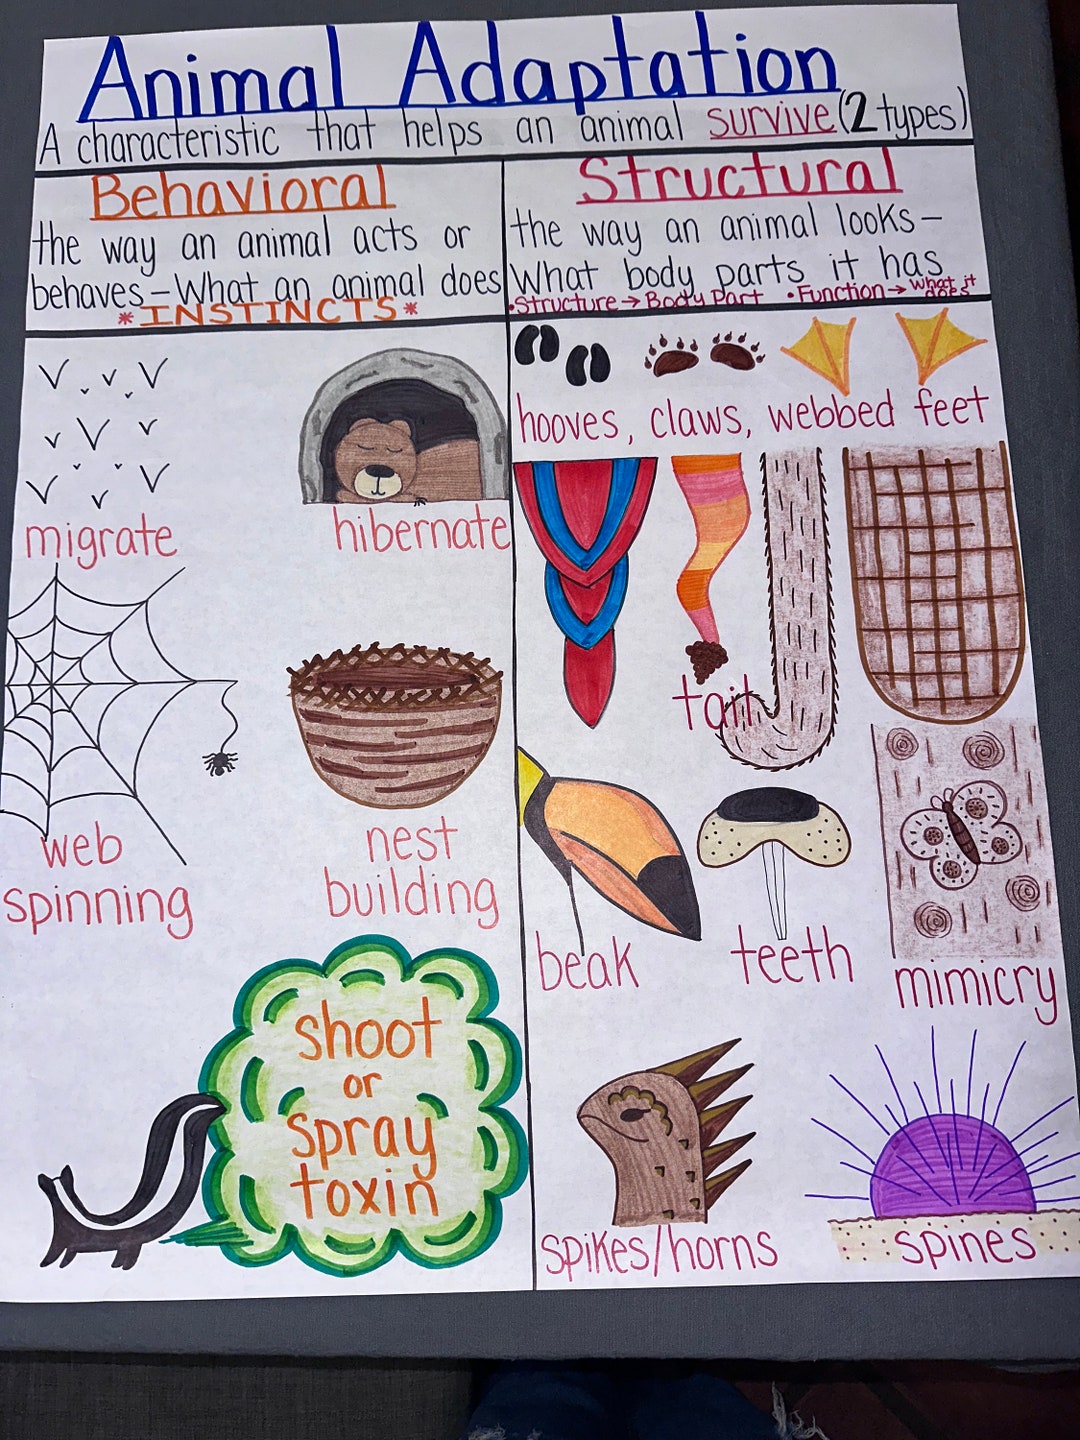 Animal Adaptation
A characteristic that helps an animal survive (2 types)
Behavioral
the way an animal acts or
behaves - What an animal does
*INSTINCTS*
Structural
the way an animal looks -
What body parts it has
•Structure → Body Part •Function → What it does
migrate
hibernate
web
spinning
nest
building
shoot
or
spray
toxin
hooves, claws, webbed feet
tail
beak
teeth
mimicry
spikes/horns
spines